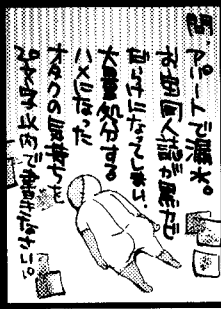 問.アパートで漏水。
お宝同人誌が黒カビ
だらけになってしまい、
大量処分する
ハメになった
オタクの気持ちを
字以内で書きなさい。